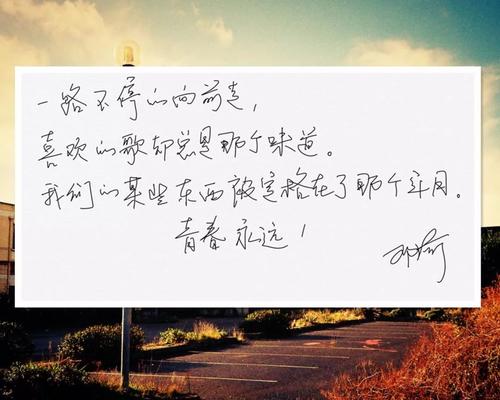 一路不停的向前走，
喜欢的歌却总是那个味道。
我们的某些东西被定格在了那个年月。
青春永远！